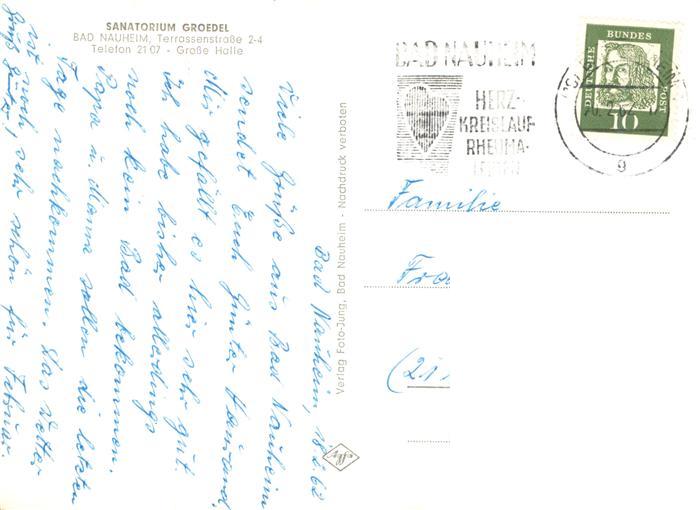 SANATORIUM GROEDEL
BAD NAUHEIM, Terrassenstraße 2-4
Telefon 21 07 - Große Halle
Bad Nauheim, 18.2.62
Viele Grüße aus Bad Nauheim
sendet Euch Günter
Mir gefällt es hier sehr gut
Ich habe bisher allerdings
noch kein Bad bekommen.
Papa u. Mama sollen die letzten
Tage nachkommen. Das Wetter
ist noch sehr schön für Februar.
Verlag Foto-Jung, Bad Nauheim - Nachdruck verboten
BAD NAUHEIM
HERZ-
KREISLAUF
RHEUMA-
g
DEUTSCHE BUNDESPOST
10
Familie
Fra
(21